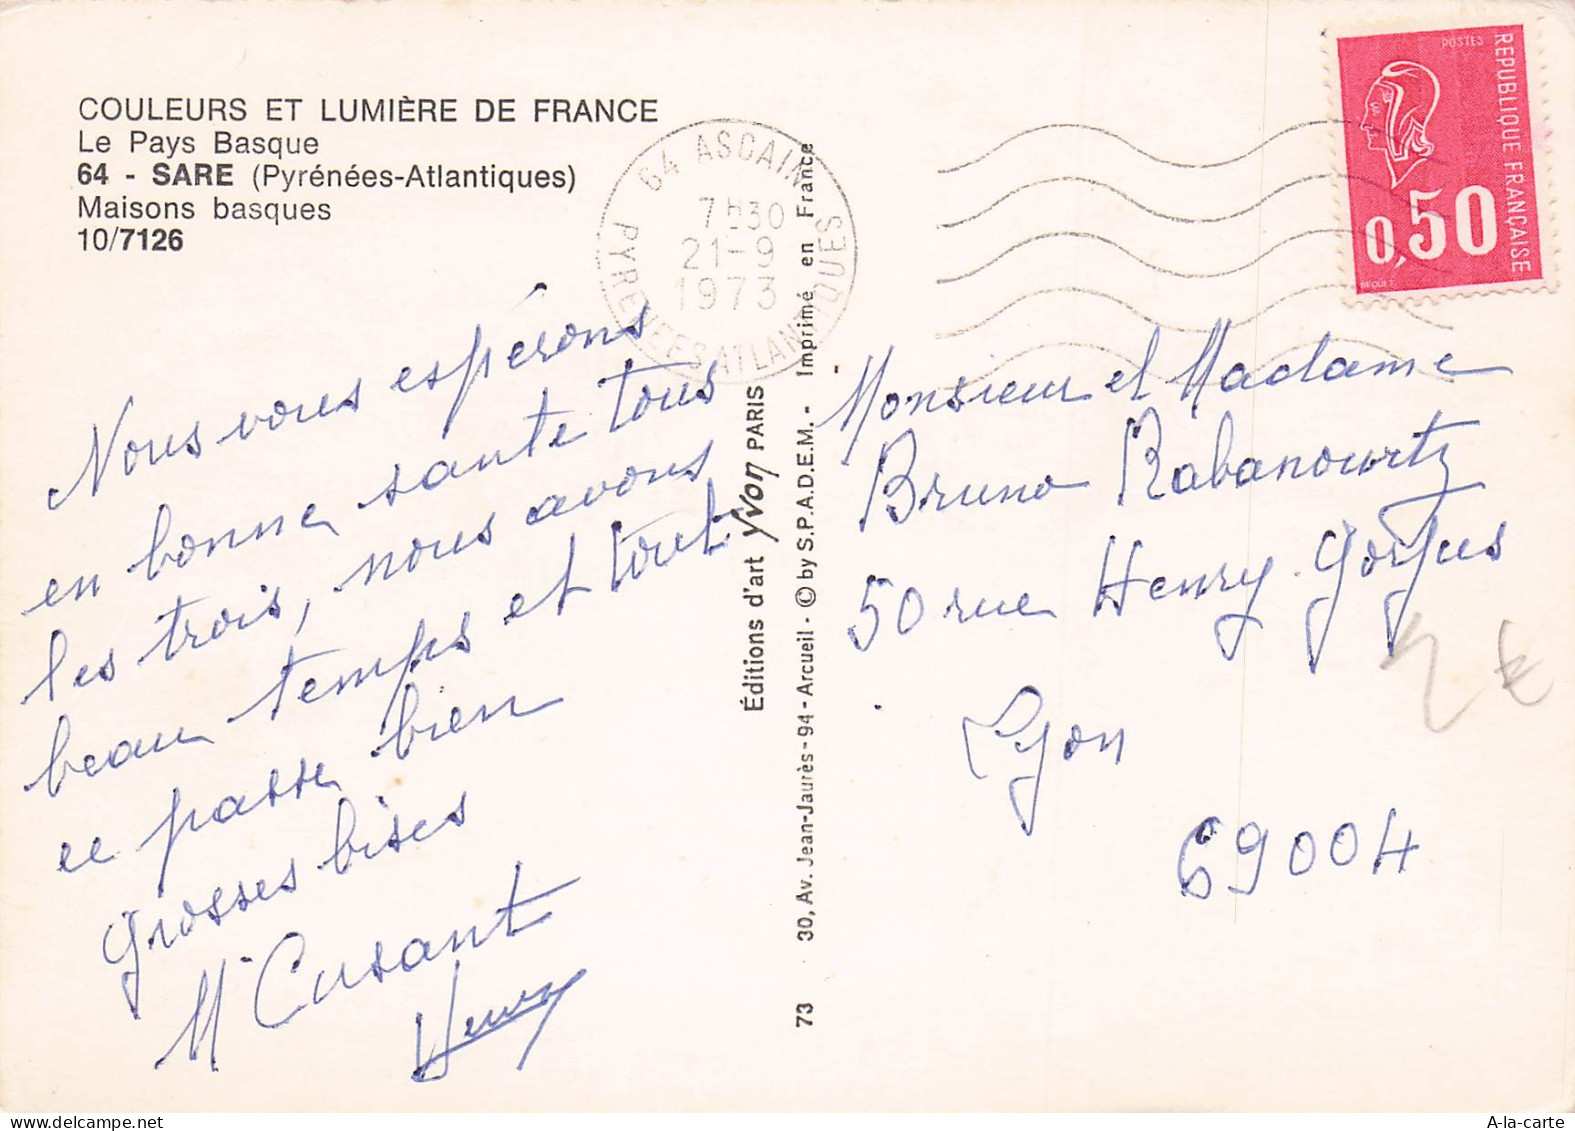 COULEURS ET LUMIÈRE DE FRANCE
Le Pays Basque
64 - SARE (Pyrénées-Atlantiques)
Maisons basques
10/7126
64 ASCAIN
7H30
21-9
1973
PYRENEES ATLANTIQUES
POSTES
REPUBLIQUE FRANÇAISE
0,50
BEQUET
Nous vous espérons
en bonne sante tous
les trois, nous avons
beau temps et tout
ce passe bien
Grosses bises
M Cusant
Henry
Éditions d'art Yvon PARIS
73 30, Av. Jean-Jaurès - 94 - Arcueil - © by S.P.A.D.E.M. - Imprimé en France
Monsieur et Madame
Bruno Rabanowitz
50 rue Henry Gorjus
Lyon
69004
A-la-carte